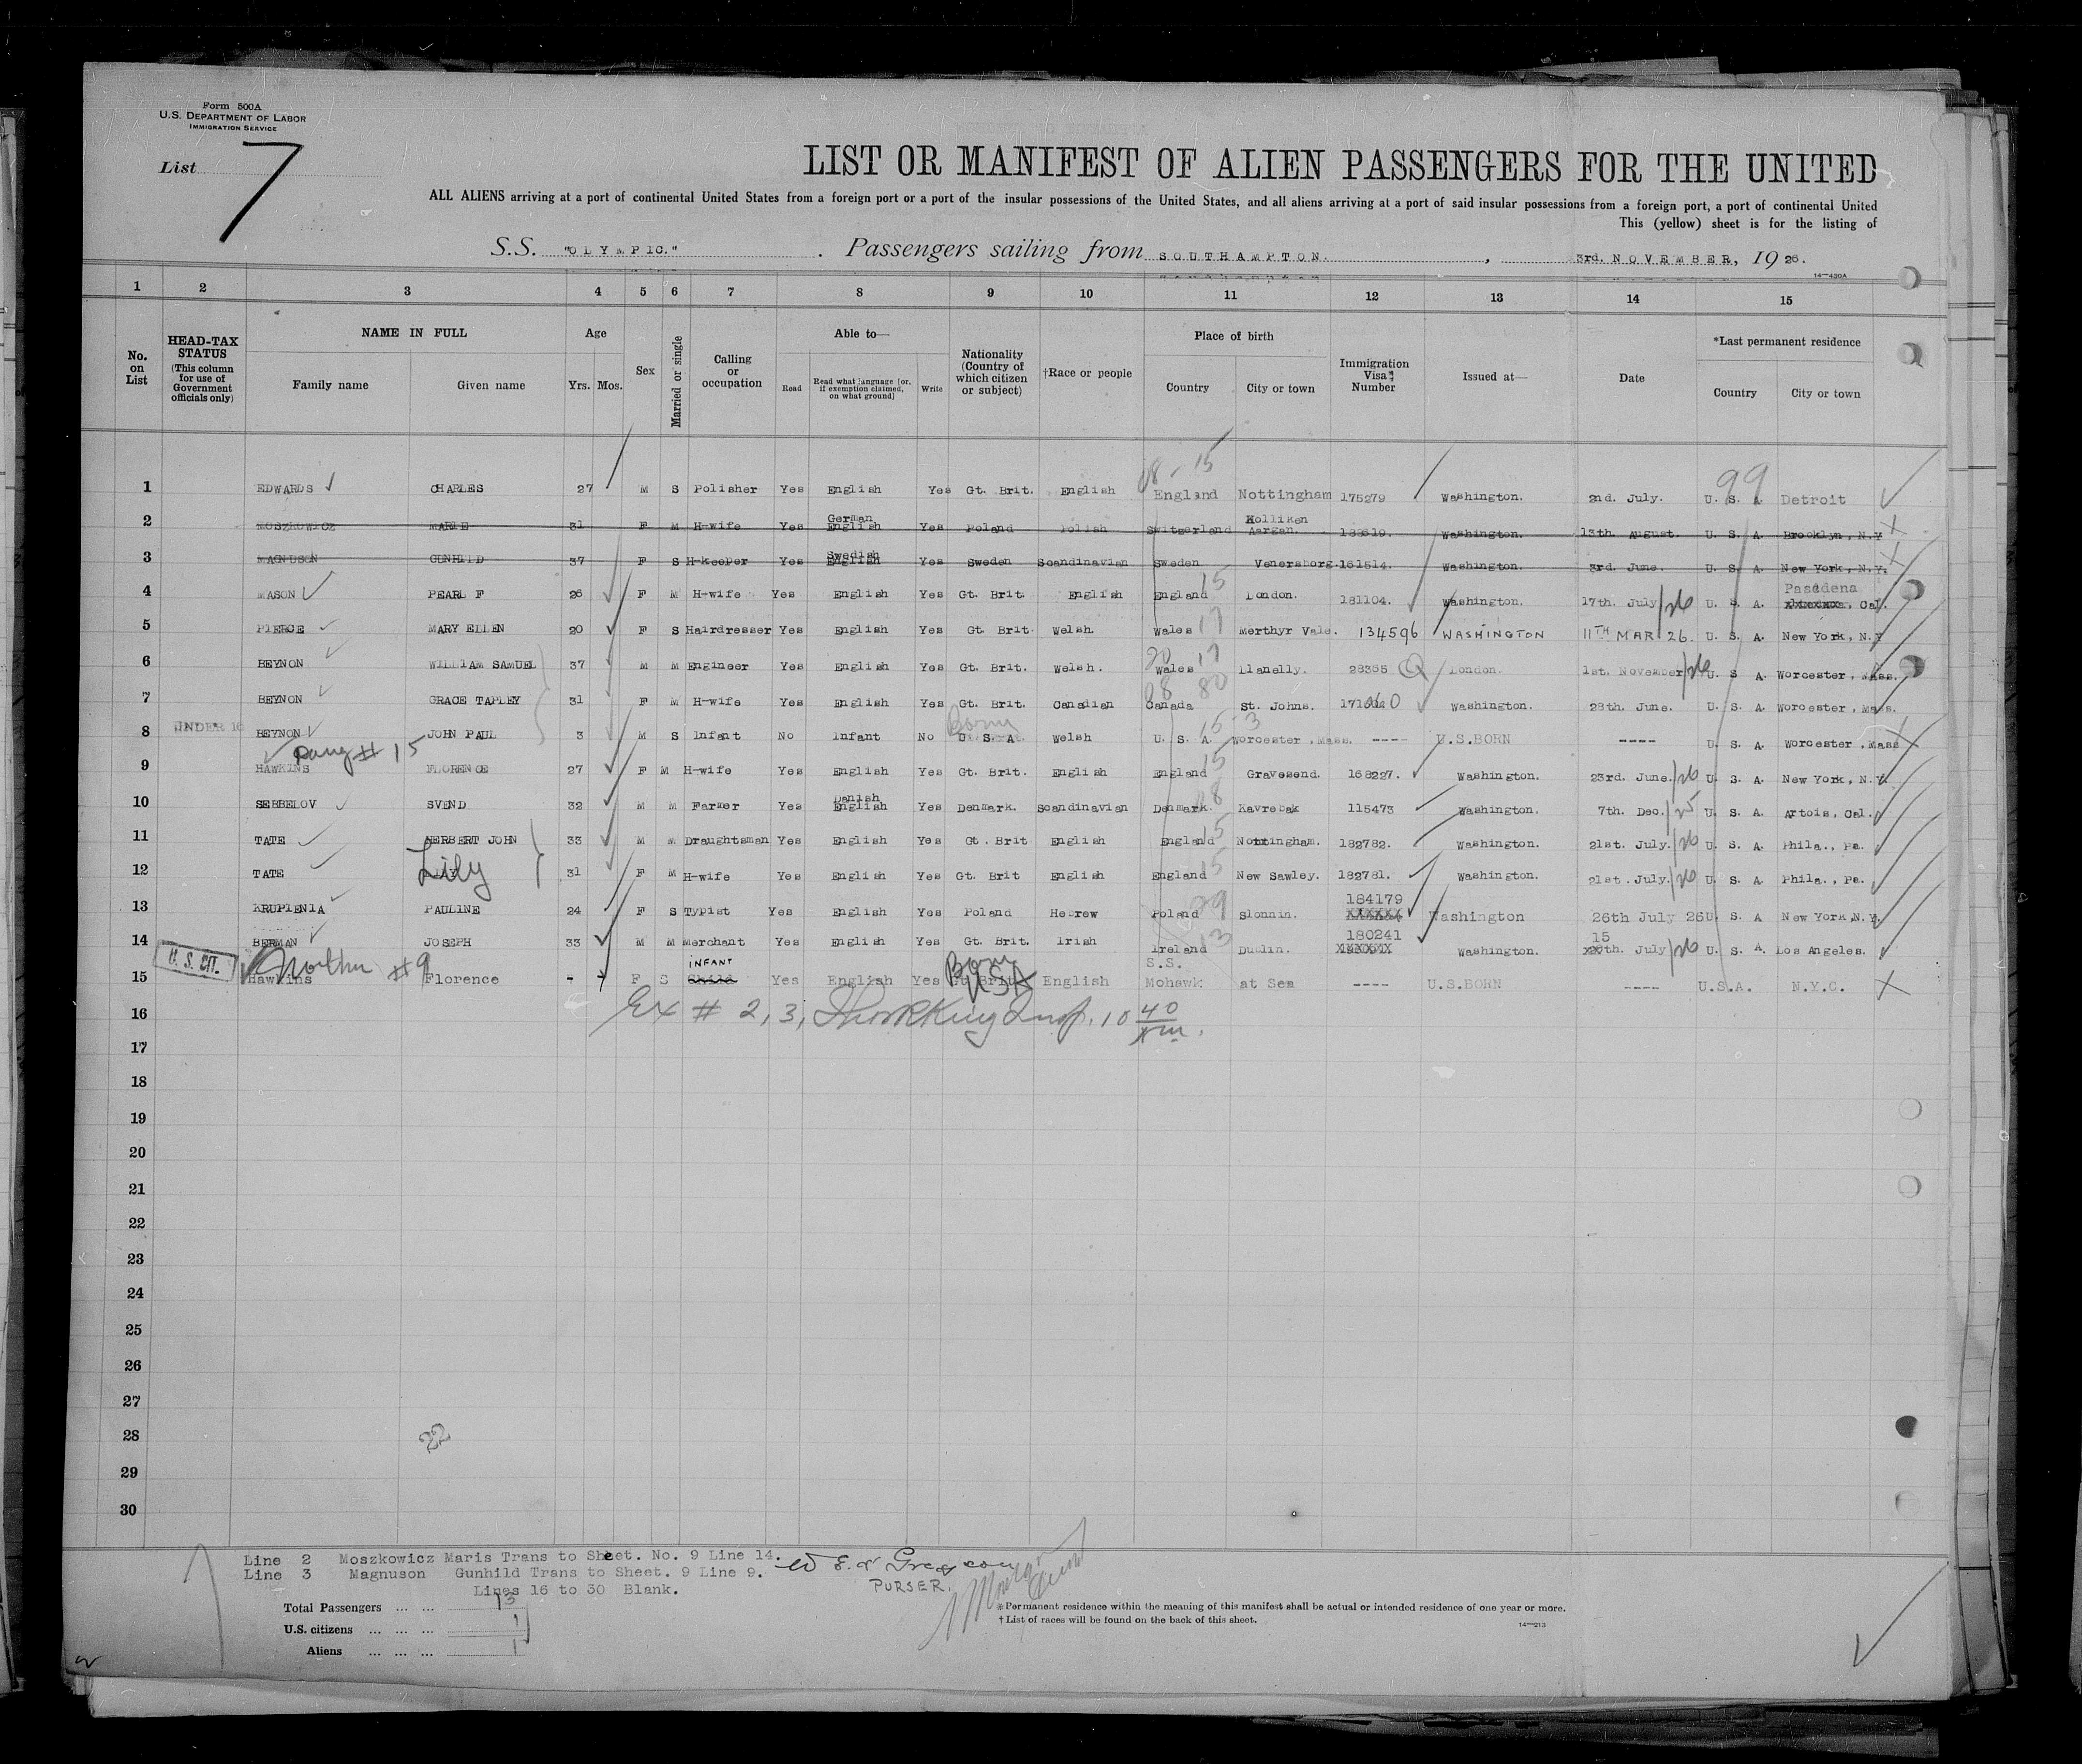 Form 500A
U.S. DEPARTMENT OF LABOR
IMMIGRATION SERVICE
List 7
LIST OR MANIFEST OF ALIEN PASSENGERS FOR THE UNITED
ALL ALIENS arriving at a port of continental United States from a foreign port or a port of the insular possessions of the United States, and all aliens arriving at a port of said insular possessions from a foreign port, a port of continental United
This (yellow) sheet is for the listing of
S.S. "OLYMPIC." Passengers sailing from SOUTHAMPTON. , 3rd. NOVEMBER, 1926.
14—430A
1 2 3 4 5 6 7 8 9 10 11 12 13 14 15
No. on List
HEAD-TAX STATUS (This column for use of Government officials only)
NAME IN FULL
Family name Given name
Age
Yrs. Mos.
Sex
Married or single
Calling or occupation
Able to—
Read Read what language [or, if exemption claimed, on what ground] Write
Nationality (Country of which citizen or subject)
†Race or people
Place of birth
Country City or town
Immigration Visa Number
Issued at—
Date
*Last permanent residence
Country City or town
08 - 15 99
1 EDWARDS CHARLES 27 M S Polisher Yes English Yes Gt. Brit. English England Nottingham 175279 Washington. 2nd. July. U. S. A. Detroit
German Kolliken
2 MOSZKOWICZ MARIE 31 F M H-wife Yes English Yes Poland Polish Switzerland Aargan. 188619. Washington. 13th. August. U. S. A. Brooklyn, N.Y
Swedish
3 MAGNUSON GUNHILD 37 F S H-keeper Yes English Yes Sweden Scandinavian Sweden Venersborg. 161514. Washington. 3rd. June. U. S. A. New York, N.Y.
15 Pasadena
4 MASON PEARL F 26 F M H-wife Yes English Yes Gt. Brit. English England London. 181104. Washington. 17th. July/26 U. S. A. , Cal.
5 PIERCE MARY ELLEN 20 F S Hairdresser Yes English Yes Gt. Brit. Welsh. Wales 17 Merthyr Vale. 134596 WASHINGTON 11TH MAR 26. U. S. A. New York, N.Y
20 17
6 BEYNON WILLIAM SAMUEL 37 M M Engineer Yes English Yes Gt. Brit. Welsh. Wales Llanelly. 28355 London. 1st. November/26 U. S A. Worcester, Mass.
08 80
7 BEYNON GRACE TAPLEY 31 F M H-wife Yes English Yes Gt. Brit. Canadian Canada St. Johns. 171060 Washington. 28th. June. U. S. A. Worcester, Mass.
Born 15-3
8 UNDER 16 BEYNON JOHN PAUL 3 M S Infant No Infant No U. S. A. Welsh U. S. A. Worcester, Mass. ---- U.S.BORN ---- U. S. A. Worcester, Mass
Daug # 15
9 HAWKINS FLORENCE 27 F M H-wife Yes English Yes Gt. Brit. English England 15 Gravesend. 168227. Washington. 23rd. June./26 U. S. A. New York, N.Y.
Danish
10 SEBBELOV SVEND 32 M M Farmer Yes English Yes Denmark. Scandinavian Denmark. Kavrebak 115473 Washington. 7th. Dec./25 U. S. A. Artois, Cal.
11 TATE HERBERT JOHN 33 M M Draughtsman Yes English Yes Gt. Brit English England 15 Nottingham. 182782. Washington. 21st. July./26 U. S. A. Phila., Pa.
12 TATE Lily 31 F M H-wife Yes English Yes Gt. Brit English England 15 New Sawley. 182781. Washington. 21st. July./26 U. S. A. Phila., Pa.
184179
13 KRUPIENIA PAULINE 24 F S Typist Yes English Yes Poland Hebrew Poland Slonnin. XXXXXX Washington 26th July 26 U. S. A New York, N.Y.
180241 15
14 BERMAN JOSEPH 33 M M Merchant Yes English Yes Gt. Brit. Irish Ireland 13 Dublin. XXXXXX Washington. th. July/26 U. S. A. Los Angeles.
U. S. CIT. Mother #9 INFANT Born USA S.S.
15 Hawkins Florence - 7 F S Child Yes English Yes Gt Brit English Mohawk at Sea ---- U.S.BORN ---- U.S.A. N.Y.C.
16 Ex # 2, 3, Insp. 10 40
17
18
19
20
21
22
23
24
25
26
27
28 22
29
30
Line 2 Moszkowicz Maris Trans to Sheet. No. 9 Line 14.
Line 3 Magnuson Gunhild Trans to Sheet. 9 Line 9.
Lines 16 to 30 Blank.
PURSER.
Total Passengers ... ... 13
U.S. citizens ... ... ... 1
Aliens ... ... ... 1
*Permanent residence within the meaning of this manifest shall be actual or intended residence of one year or more.
†List of races will be found on the back of this sheet.
14—213